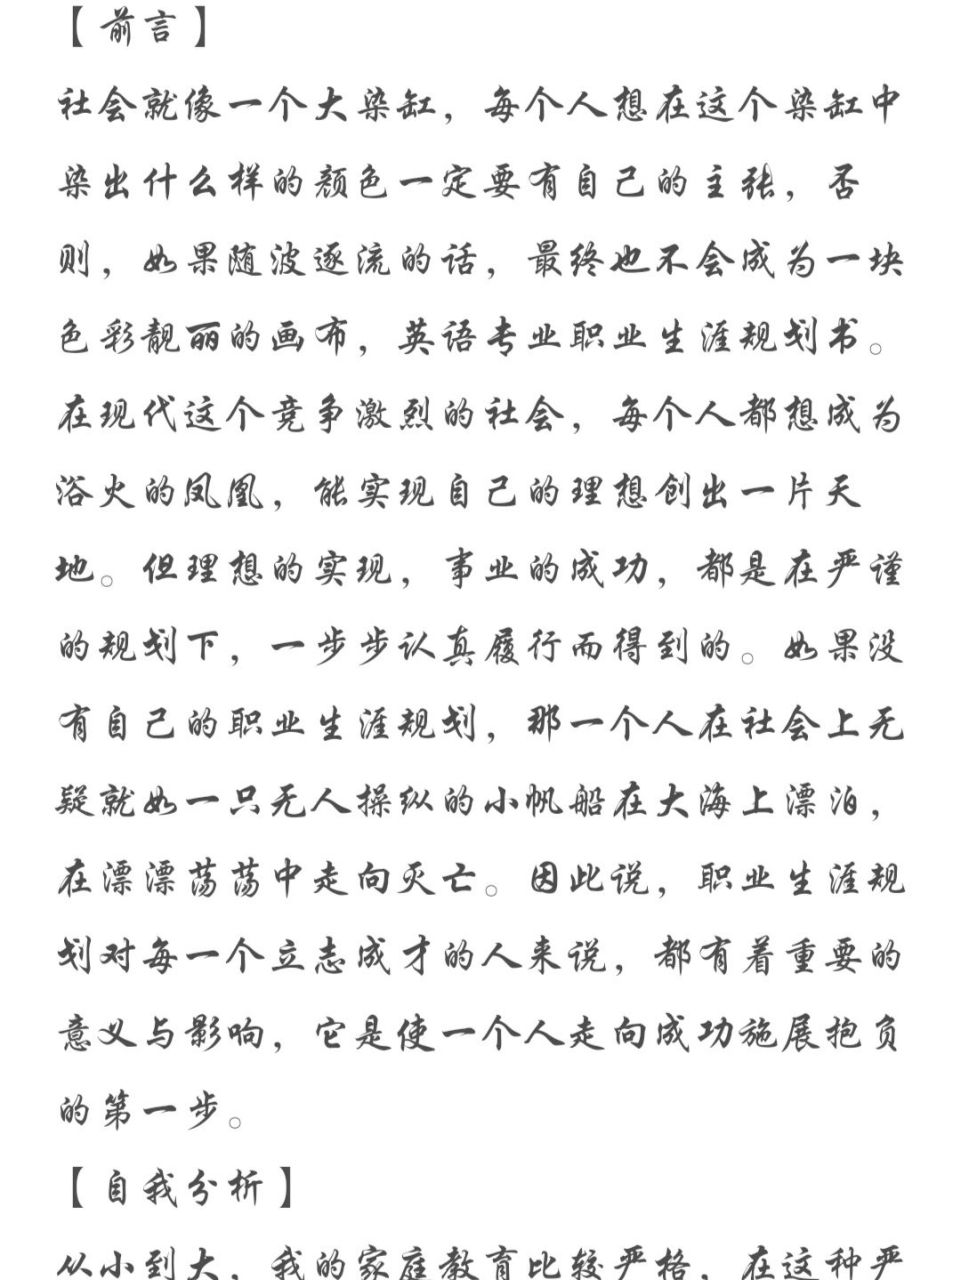 【前言】
社会就像一个大染缸，每个人想在这个染缸中
染出什么样的颜色一定要有自己的主张，否
则，如果随波逐流的话，最终也不会成为一块
色彩靓丽的画布，英语专业职业生涯规划书。
在现代这个竞争激烈的社会，每个人都想成为
浴火的凤凰，能实现自己的理想创出一片天
地。但理想的实现，事业的成功，都是在严谨
的规划下，一步步认真履行而得到的。如果没
有自己的职业生涯规划，那一个人在社会上无
疑就如一只无人操纵的小帆船在大海上漂泊，
在漂漂荡荡中走向灭亡。因此说，职业生涯规
划对每一个立志成才的人来说，都有着重要的
意义与影响，它是使一个人走向成功施展抱负
的第一步。
【自我分析】
从小到大，我的家庭教育比较严格，在这种严